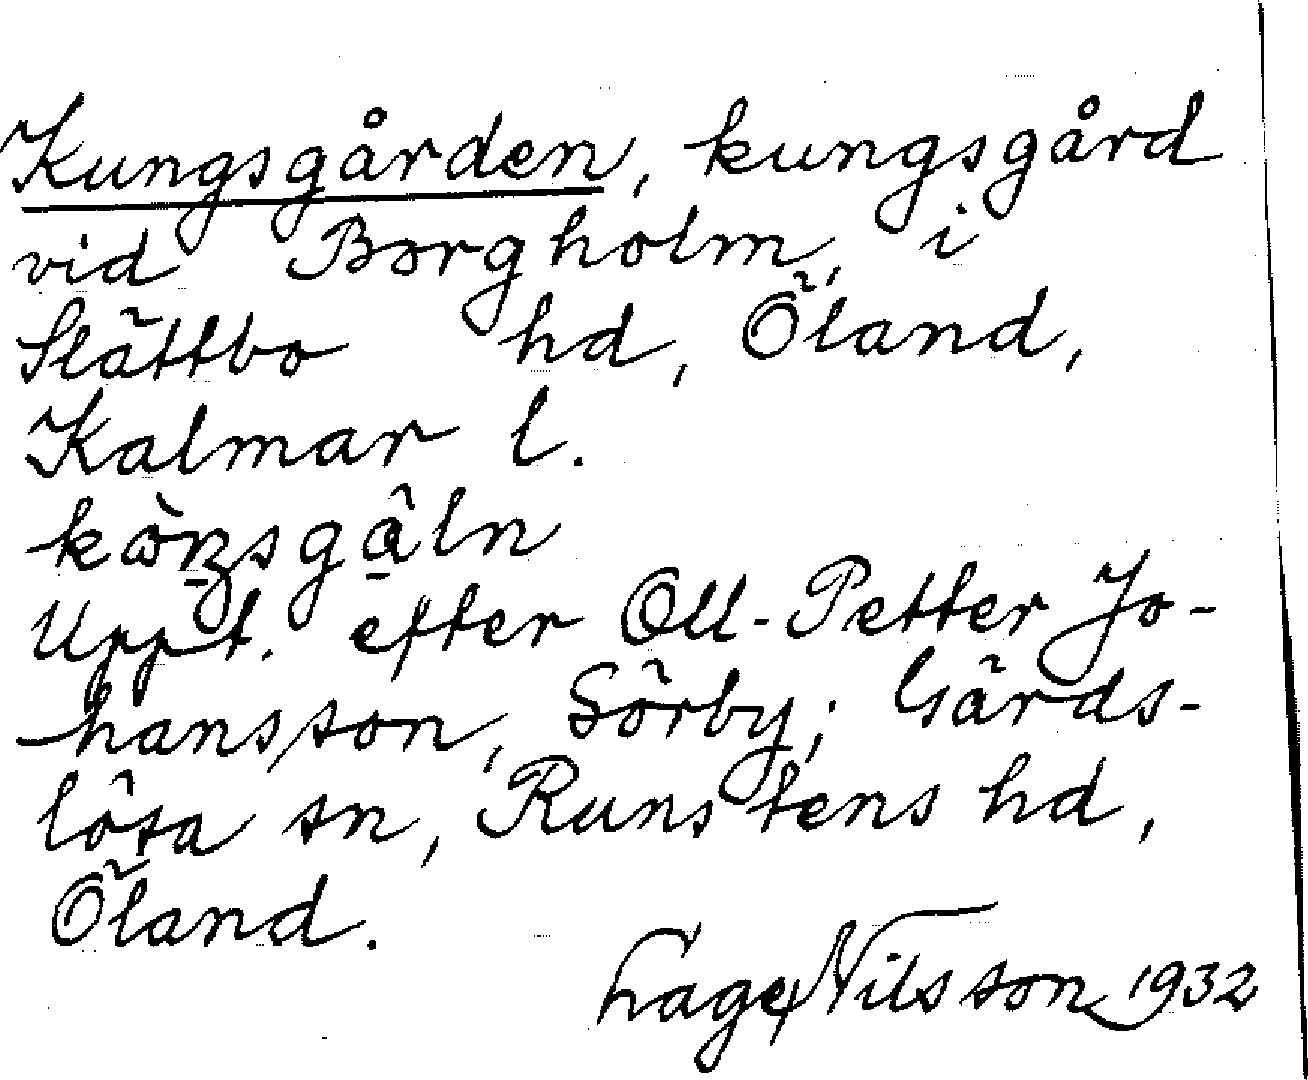 Kungsgården, kungsgård
vid Borgholm, i
Slättbo hd, Öland,
Kalmar l.
Uppt. efter Oll-Petter Jo-
hansson, Sörby, Gärds-
lösa sn, Runstens hd,
Öland.
Lage Nilsson 1932